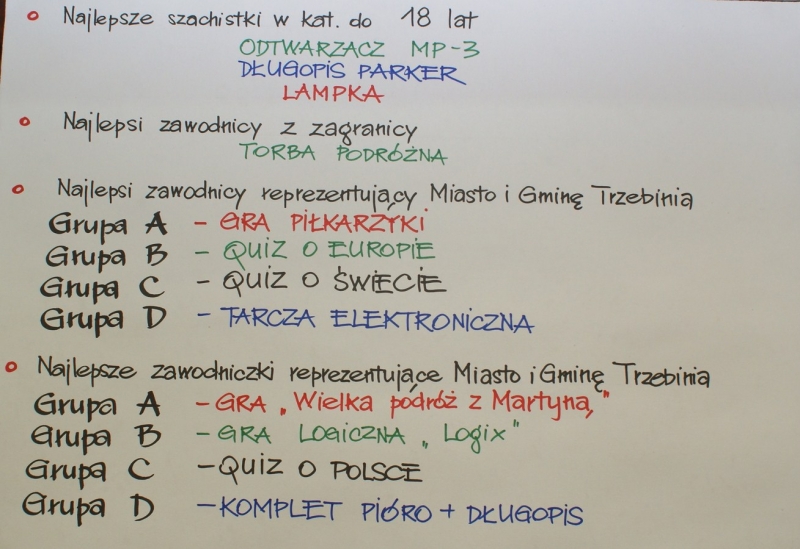 Najlepsze szachistki w kat. do 18 lat
ODTWARZACZ MP-3
DŁUGOPIS PARKER
LAMPKA
Najlepsi zawodnicy z zagranicy
TORBA PODRÓŻNA
Najlepsi zawodnicy reprezentujący Miasto i Gminę Trzebinia
Grupa A - GRA PIŁKARZYKI
Grupa B - QUIZ O EUROPIE
Grupa C - QUIZ O ŚWIECIE
Grupa D - TARCZA ELEKTRONICZNA
Najlepsze zawodniczki reprezentujące Miasto i Gminę Trzebinia
Grupa A - GRA „Wielka podróż z Martyną"
Grupa B - GRA LOGICZNA „Logix"
Grupa C - QUIZ O POLSCE
Grupa D - KOMPLET PIÓRO + DŁUGOPIS